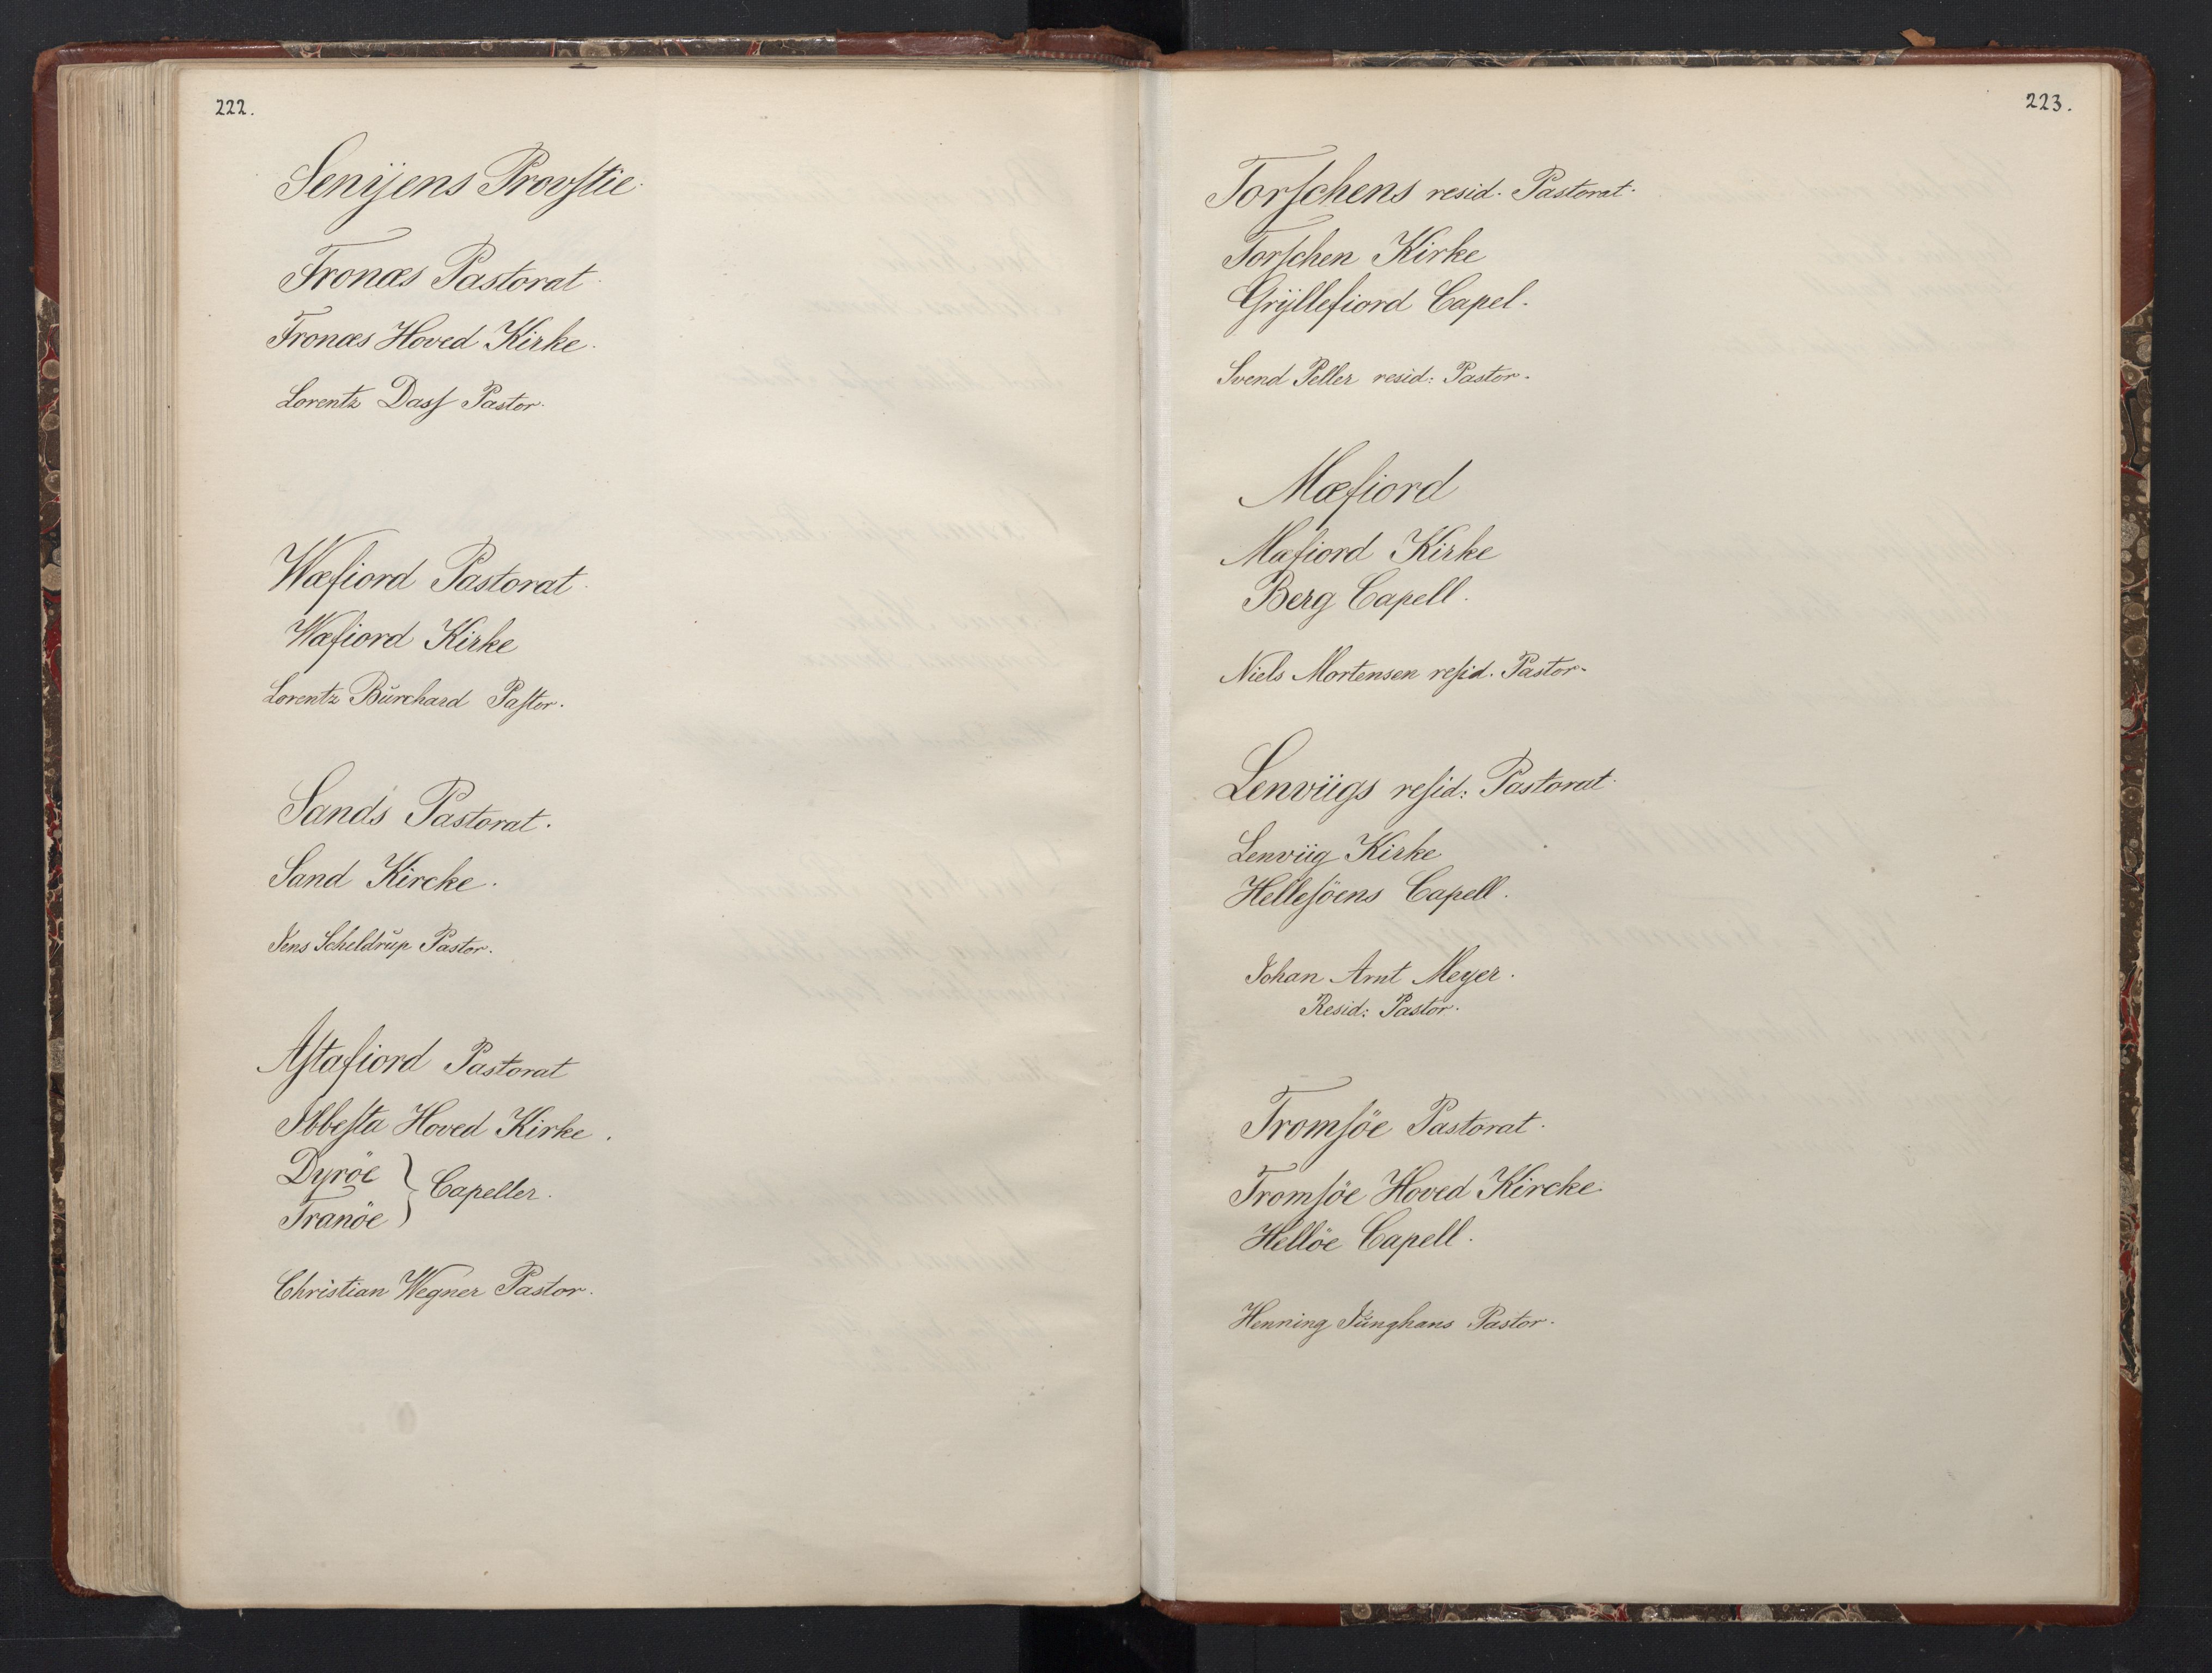 222.
Senÿens Provſtie
Tronæs Pastorat
Tronæs Hoved Kirke.
Lorentz Dasſ Pastor.
Wæfiord Pastorat.
Wæfiord Kirke
Lorentz Bŭrchard Paſtor.
Sands Pastorat.
Sand Kircke.
Jens Scheldrŭp Pastor.
Aſtafiord Pastorat
Ibbeſta Hoved Kirke.
Dyröe
Tranöe } Capeller.
Christian Wegner Pastor.
223.
Torſchens resid. Pastorat.
Torſchen Kirke
Grÿllefiord Capel.
Svend Peller resid: Pastor.
Mæfiord
Mæfiord Kirke
Berg Capell.
Niels Mortensen reſid. Pastor.
Lenviigs reſid: Pastorat.
Lenviig Kirke
Helleſöens Capell.
Johan Arnt Meyer.
Resid: Pastor.
Tromſöe Pastorat.
Tromſöe Hoved Kircke.
Hellöe Capell.
Henning Jŭnghans Pastor.